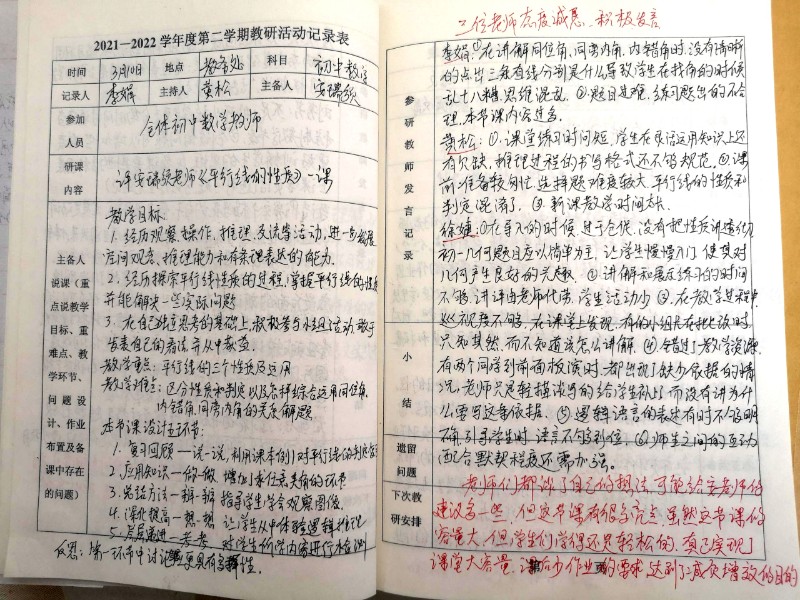 2021—2022学年度第二学期教研活动记录表
时间 3月10日 地点 教务处 科目 初中数学
记录人 李娟 主持人 黄松 主备人 安瑞领
参加人员 全体初中数学教师
研课内容 评安瑞领老师《平行线的性质》一课
主备人说课（重点说教学目标、重难点、教学环节、问题设计、作业布置及备课中存在的问题）
教学目标:
1. 经历观察、操作、推理、交流等活动,进一步发展
空间观念,推理能力和有条理表达的能力.
2. 经历探索平行线性质的过程,掌握平行线的性质
并能解决一些实际问题
3. 在自己独立思考的基础上,积极参与小组活动,敢于
发表自己的看法并从中获益.
教学重点: 平行线的三个性质及运用
教学难点: 区分性质和判定以及怎样综合运用同位角,
内错角,同旁内角的关系解题
本节课设计五环节:
1. 复习回顾一说一说,利用课本例1对平行线的判定
2. 应用知识一做一做 增加了求任意角的环节
3. 总结方法一辩一辩 指导学生学会观察图像.
4. 深化提高一想一想 让学生从中体验逻辑推理
5. 层层递进一考一考 对学生所学内容进行检测
反思: 第一环节中讨论
三位老师态度诚恳、积极发言
参研教师发言记录
李娟:①在讲解同位角,同旁内角,内错角时,没有清晰
的点出三线,直线分别是什么导致学生在找角的时候
乱七八糟,思维混乱. ②题目过难,练习题出的不合
理,本节课内容过多.
黄松:①.课堂练习时间短,学生在灵活运用知识上还
有欠缺,推理过程的书写格式还不够规范. ②课
前准备较匆忙,选择题难度较大,平行线的性质和
判定混淆了. ③新课教学时间太长.
徐婕:①在导入的时候,过于仓促,没有把性质讲透彻
初一几何题目应以简单为主,让学生慢慢入门,使其对
几何产生良好的兴趣. ②讲解和展示练习的时间
不够,讲评由老师代劳,学生活动少 ③.在教学过程中
巡视程度不够,在课堂上发现,有的小组只在
只知其然,而不知道该怎么讲解. ④错过了教学资源
有两个同学到前面板演时,都出现了缺少依据的情
况,老师只是轻描淡写的给学生补上,而没有讲为什
么要写这等依据. ⑤逻辑语言的表述有时不够明
确,引导学生时语言不够到位. ⑥师生之间的互动
配合默契程度还需加强.
小结
遗留问题
下次教研安排
老师们都谈了自己的想法,可能给安老师的
建议多一些,但这节课有很多亮点,虽然这节课的
容量大,但学生们学得还是轻松的,真正实现了
课堂大容量,课后少作业的要求,达到了减负增效的目的